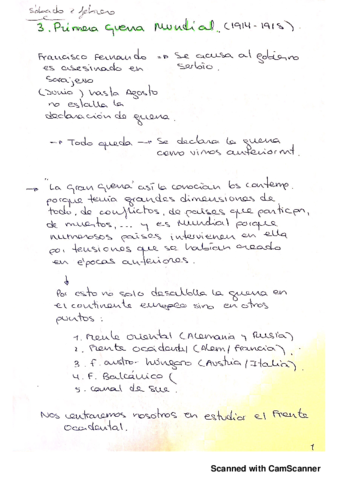 sábado 1 febrero
3. Primera Guerra Mundial. (1914-1918)
Francisco Fernando → Se acusa al gobierno
es asesinado en serbio.
Sarajevo
(Junio) hasta Agosto
no estalla la
declaración de guerra.
→ Todo queda → Se declara la guerra
como vimos anteriormt.
→ "La Gran Guerra" así la conocían los contemp.
porque tenía grandes dimensiones de
todo, de conflictos, de países que participan,
de muertos, ... y es Mundial porque
numerosos países intervienen en ella
por tensiones que se habían creado
en épocas anteriores.
↓
Por esto no solo desarrolla la guerra en
el continente europeo sino en otros
puntos:
1. Frente oriental (Alemania y Rusia)
2. Frente Occidental (Alem/Francia)
3. F. austro-húngaro (Austria/Italia)
4. F. Balcánico (
5. canal de Sue.
Nos centraremos nosotros en estudiar el Frente
Occidental.
1
Scanned with CamScanner